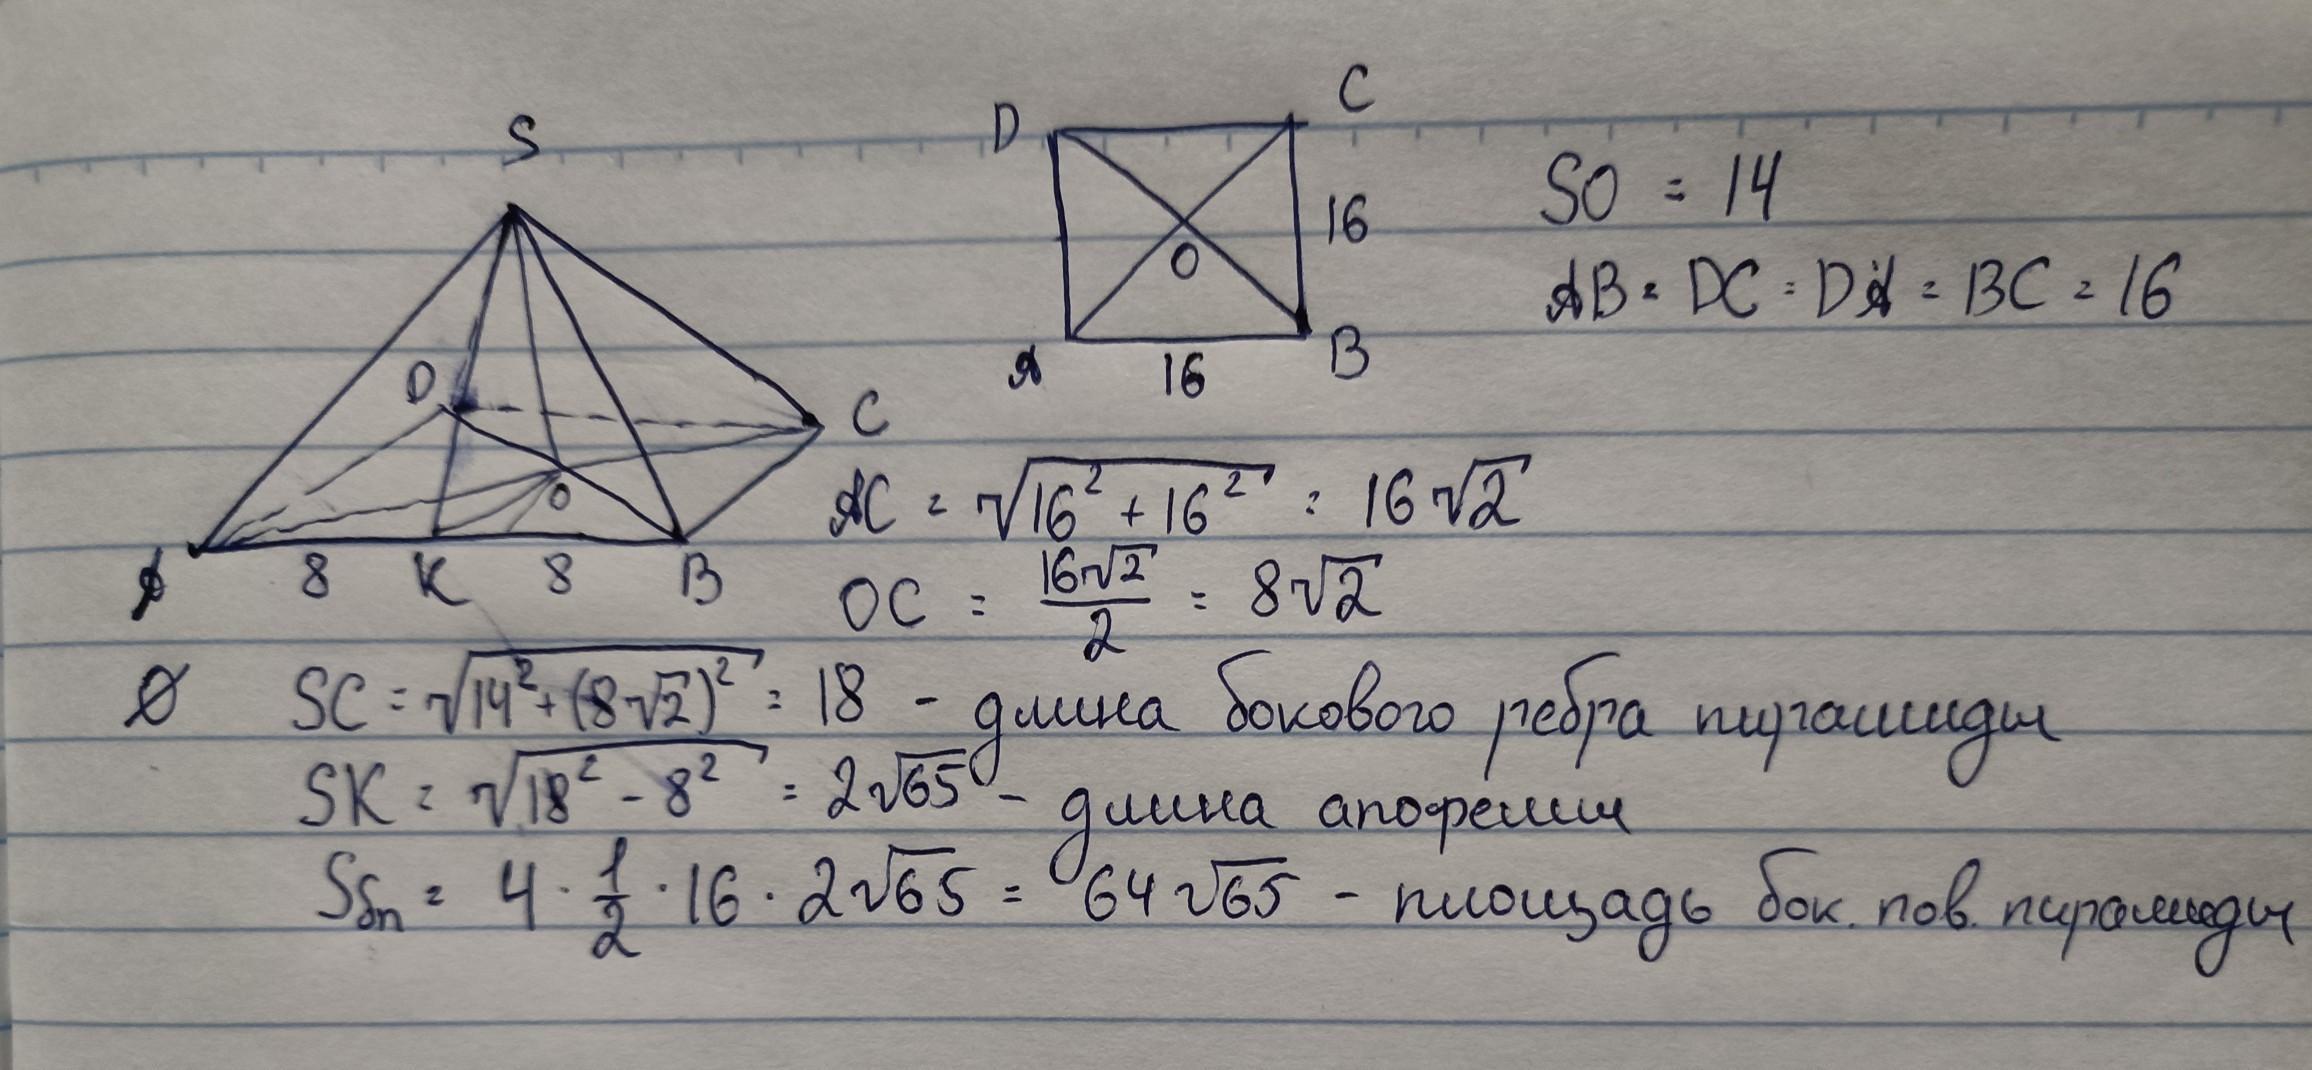 S
D C
16
O
A 16 B
SO = 14
AB = DC = DA = BC = 16
D C
O
A 8 K 8 B
AC = √(16² + 16²) = 16√2
OC = 16√2/2 = 8√2
SC = √(14² + (8√2)²) = 18 - длина бокового ребра пирамиды
SK = √(18² - 8²) = 2√65 - длина апофемы
Sбп = 4 · 1/2 · 16 · 2√65 = 64√65 - площадь бок. пов. пирамиды